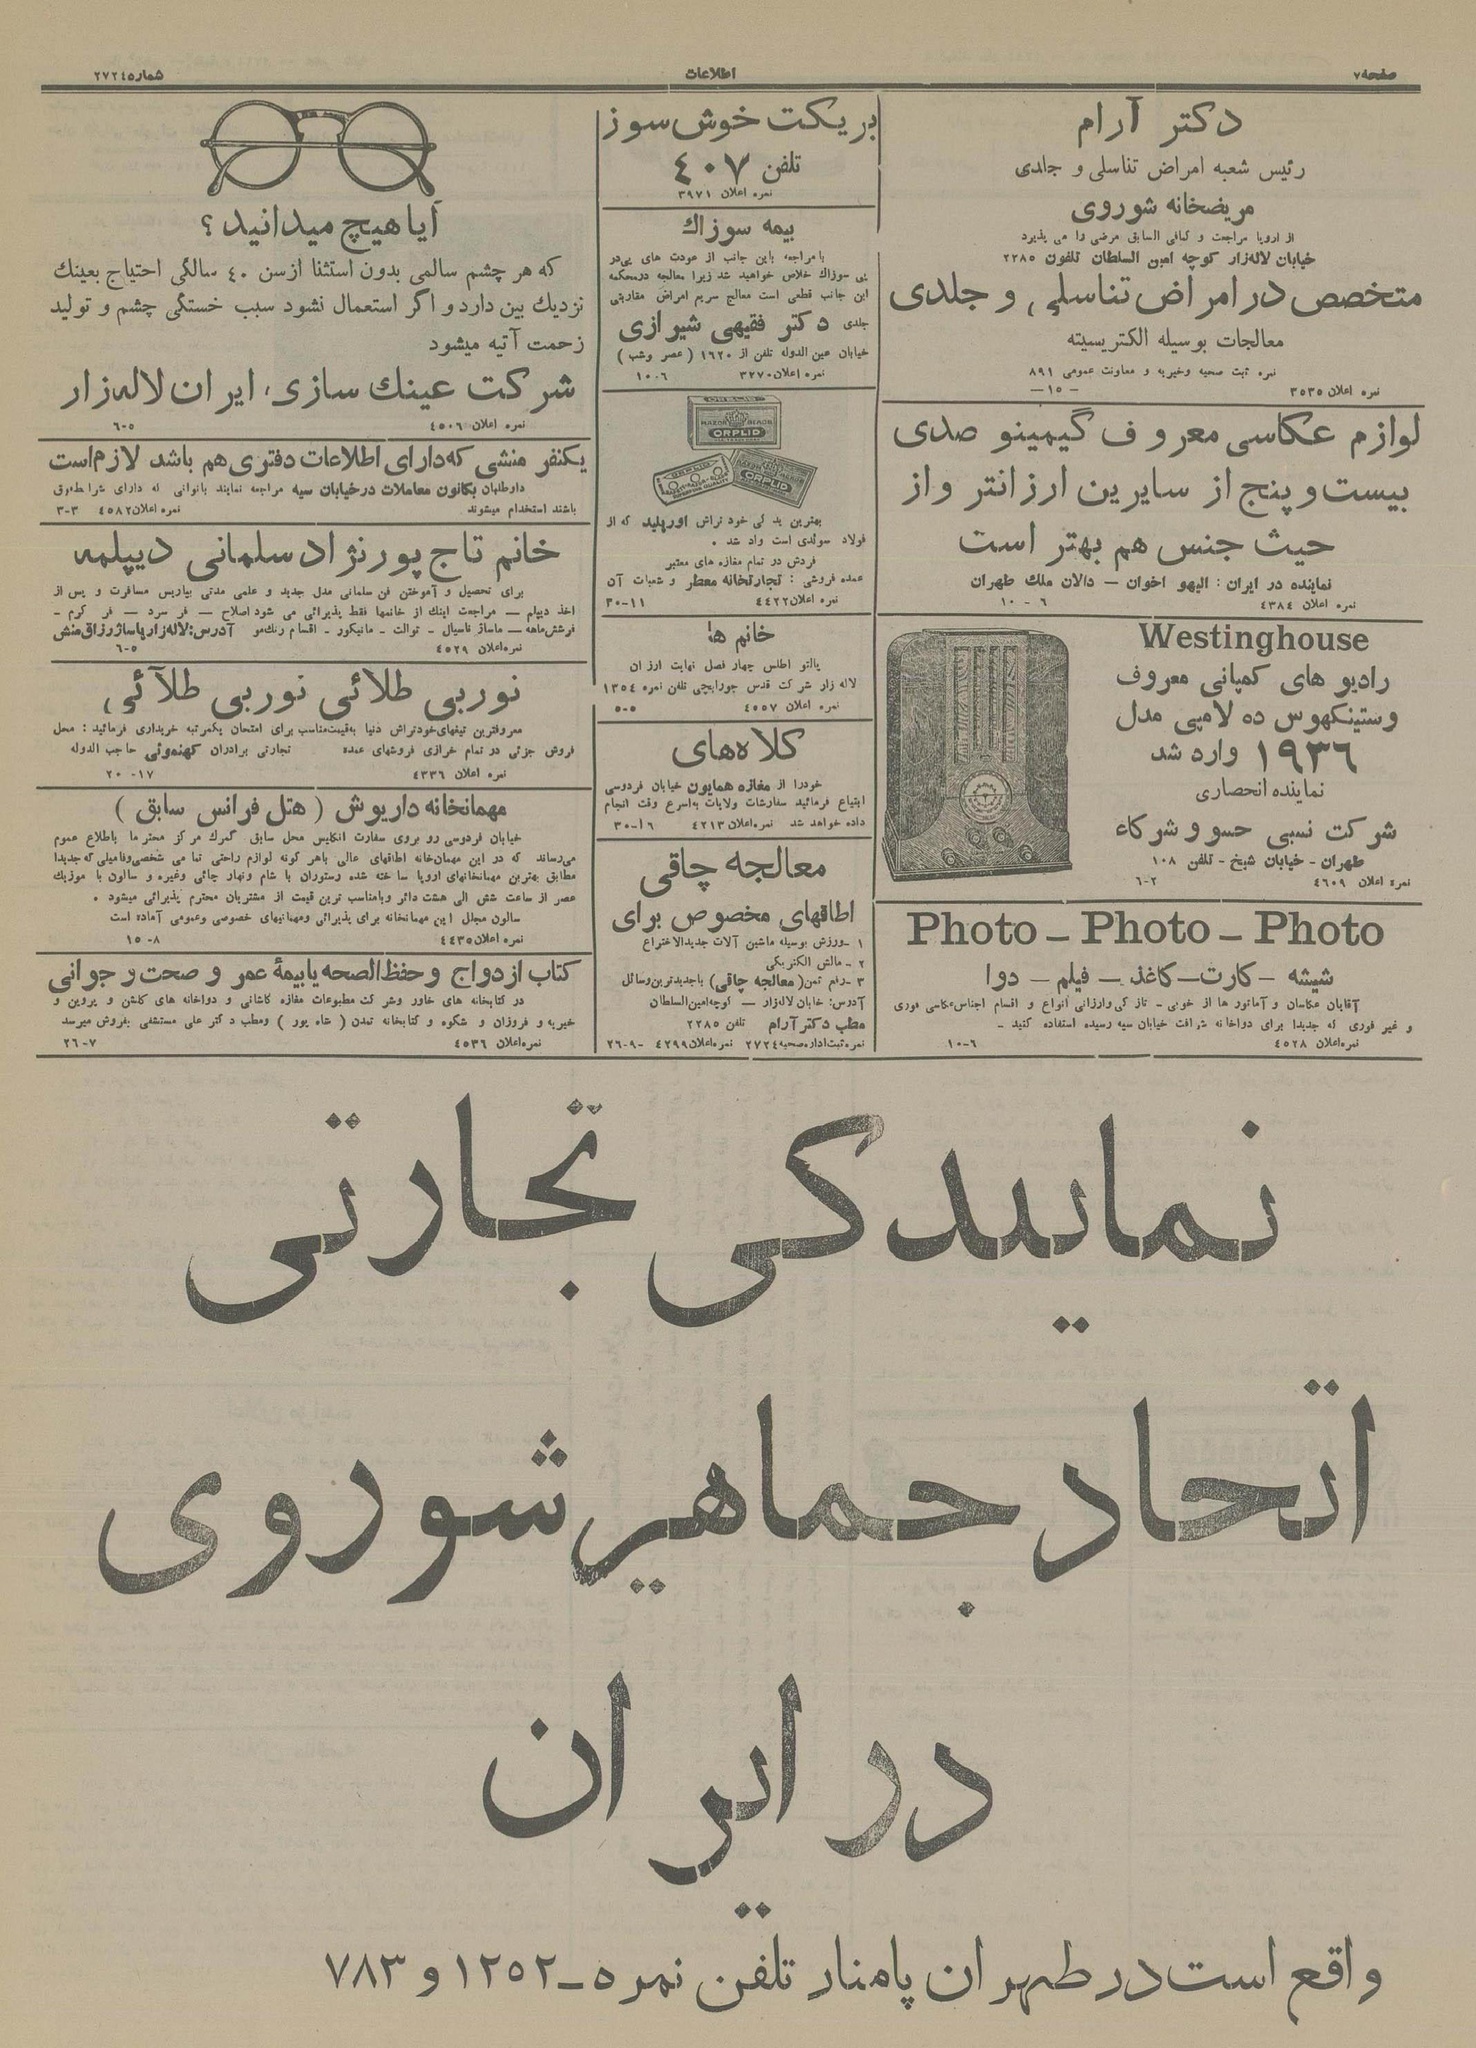 صفحه ۷
اطلاعات
شماره ۲۷۲۴
دکتر آرام
رئیس شعبه امراض تناسلی و جلدی
مریضخانه شوروی
از اروپا مراجعت و کمافی السابق مرضی را می پذیرد
خیابان لاله‌زار کوچه امین السلطان تلفون ۲۲۸۵
متخصص در امراض تناسلی و جلدی
معالجات بوسیله الکتریسیته
نمره ثبت صحیه و خیریه و معاونت عمومی ۸۹۱
نمره اعلان ۳۵۳۵ — ۱۵ —
لوازم عکاسی معروف گیمینو صدی
بیست و پنج از سایرین ارزانتر و از
حیث جنس هم بهتر است
نماینده در ایران : الیهو اخوان — دالان ملك طهران
نمره اعلان ۴۳۸۴ ۶ - ۱۰
Westinghouse
رادیو های کمپانی معروف
وستینکهوس ده لامپی مدل
۱۹۳۶ وارد شد
نماینده انحصاری
شرکت نسبی حسو و شرکاء
طهران - خیابان شیخ - تلفن ۱۰۸
نمره اعلان ۴۶۰۹ ۲-۶
Photo - Photo - Photo
شیشه - کارت - کاغذ - فیلم - دوا
آقایان عکاسان و آماتور ها از خوبی - تازگی وارزانی انواع و اقسام اجناس عکاسی فوری
و غیر فوری که جدیدا برای دواخانه شرافت خیابان سپه رسیده استفاده کنید -
نمره اعلان ۴۵۲۸ ۶-۱۰
بریکت خوش سوز
تلفن ۴۰۷
نمره اعلان ۳۹۷۱
بیمه سوزاك
با مراجعه باین جانب از عودت های پی‌در
پی سوزاك خلاص خواهید شد زیرا معالجه درمحکمه
این جانب قطعی است معالج سریع امراض مقاربتی
جلدی دکتر فقیهی شیرازی
خیابان عین الدوله تلفن از ۱۶۲۰ ( عصر وشب )
نمره اعلان ۳۲۷۰ ۶-۱۰
ORPLID
RAZOR BLADE
ORPLID
ORPLID
ORPLID
بهترین یدکی خود تراش اورپلید که از
فولاد سوئدی است وارد شد .
فروش در تمام مغازه های معتبر
عمده فروشی : تجارتخانه معطر و شعبات آن
نمره اعلان ۴۴۲۲ ۱۱-۳۰
خانم ها
پالتو اطلس چهار فصل نهایت ارزان
لاله زار شرکت قدس جورابچی تلفن نمره ۱۳۵۴
نمره اعلان ۴۵۵۷ ۵-۵
کلاه‌های
خودرا از مغازه همایون خیابان فردوسی
ابتیاع فرمائید سفارشات ولایات به‌اسرع وقت انجام
داده خواهد شد نمره اعلان ۴۲۱۳ ۱۶-۳۰
معالجه چاقی
اطاقهای مخصوص برای
۱ -ورزش بوسیله ماشین آلات جدیدالاختراع
۲ - مالش الکتریکی
۳ -رفع سمن ( معالجه چاقی ) باجدیدترین وسائل
آدرس: خیابان لاله‌زار - کوچه‌امین‌السلطان
مطب دکتر آرام تلفن ۲۲۸۵
نمره ثبت اداره صحیه ۲۷۲۴ نمره اعلان ۴۲۹۹ ۹-۲۶
آیا هیچ میدانید ؟
که هر چشم سالمی بدون استثنا از سن ۴۰ سالگی احتیاج بعینك
نزدیك بین دارد و اگر استعمال نشود سبب خستگی چشم و تولید
زحمت آتیه میشود
شرکت عینك سازی، ایران لاله‌زار
نمره اعلان ۴۵۰۶ ۵-۶
یکنفر منشی که دارای اطلاعات دفتری هم باشد لازم است
داوطلبان بکانون معاملات در خیابان سپه مراجعه نمایند بانوانی که دارای شرایط‌فوق
باشند استخدام میشوند نمره اعلان ۴۵۸۲ ۳-۳
خانم تاج پورنژاد سلمانی دیپلمه
برای تحصیل و آموختن فن سلمانی مدل جدید و علمی مدتی بپاریس مسافرت و پس از
اخذ دیپلم — مراجعت اینك از خانمها فقط پذیرائی می شود اصلاح — فر سرد — فر گرم -
فرشش‌ماهه — ماساژ فاسیال - توالت - مانیکور - اقسام رنك‌مو آدرس: لاله‌زار پاساژ رزاق منش
نمره اعلان ۴۵۲۹ ۵-۶
نوربی طلائی نوربی طلائی
معروفترین تیغهای خودتراش دنیا به‌قیمت‌مناسب برای امتحان یکمرتبه خریداری فرمائید : محل
فروش جزئی در تمام خرازی فروشهای عمده تجارتی برادران کهنموئی حاجب الدوله
نمره اعلان ۴۳۳۶ ۱۷-۲۰
مهمانخانه داریوش ( هتل فرانس سابق )
خیابان فردوسی رو بروی سفارت انگلیس محل سابق گمرك مرکز محترما باطلاع عموم
می‌رساند که در این مهمان‌خانه اطاقهای عالی باهر گونه لوازم راحتی تمامی شخصی‌وفامیلی که جدیدا
مطابق بهترین مهمانخانه‌های اروپا ساخته شده رستوران با شام ونهار چائی وغیره و سالون با موزیك
عصر از ساعت شش الی هشت دائر وبامناسب ترین قیمت از مشتریان محترم پذیرائی میشود .
سالون مجلل این مهمانخانه برای پذیرائی ومهمانیهای خصوصی وعمومی آماده است
نمره اعلان ۴۴۳۵ ۸-۱۵
کتاب ازدواج و حفظ‌الصحه یا بیمهٔ عمر و صحت و جوانی
در کتابخانه های خاور وشرکت مطبوعات مغازه کاشانی و دواخانه های گلشن و پروین و
خیریه و فروزان و شکوه و کتابخانه تمدن ( شاه پور ) ومطب دکتر علی مستشفی بفروش میرسد
نمره اعلان ۴۵۳۶ ۷-۲۶
نمایندگی تجارتی
اتحاد جماهیر شوروی
در ایران
واقع است در طهران پامنار تلفن نمره - ۱۲۵۲ و ۷۸۳